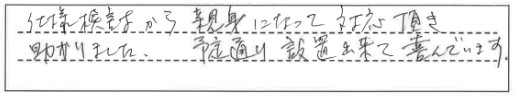 仕様検討から 親身になって 対応頂き
助かりました。 予定通り 設置出来て 喜んでいます。